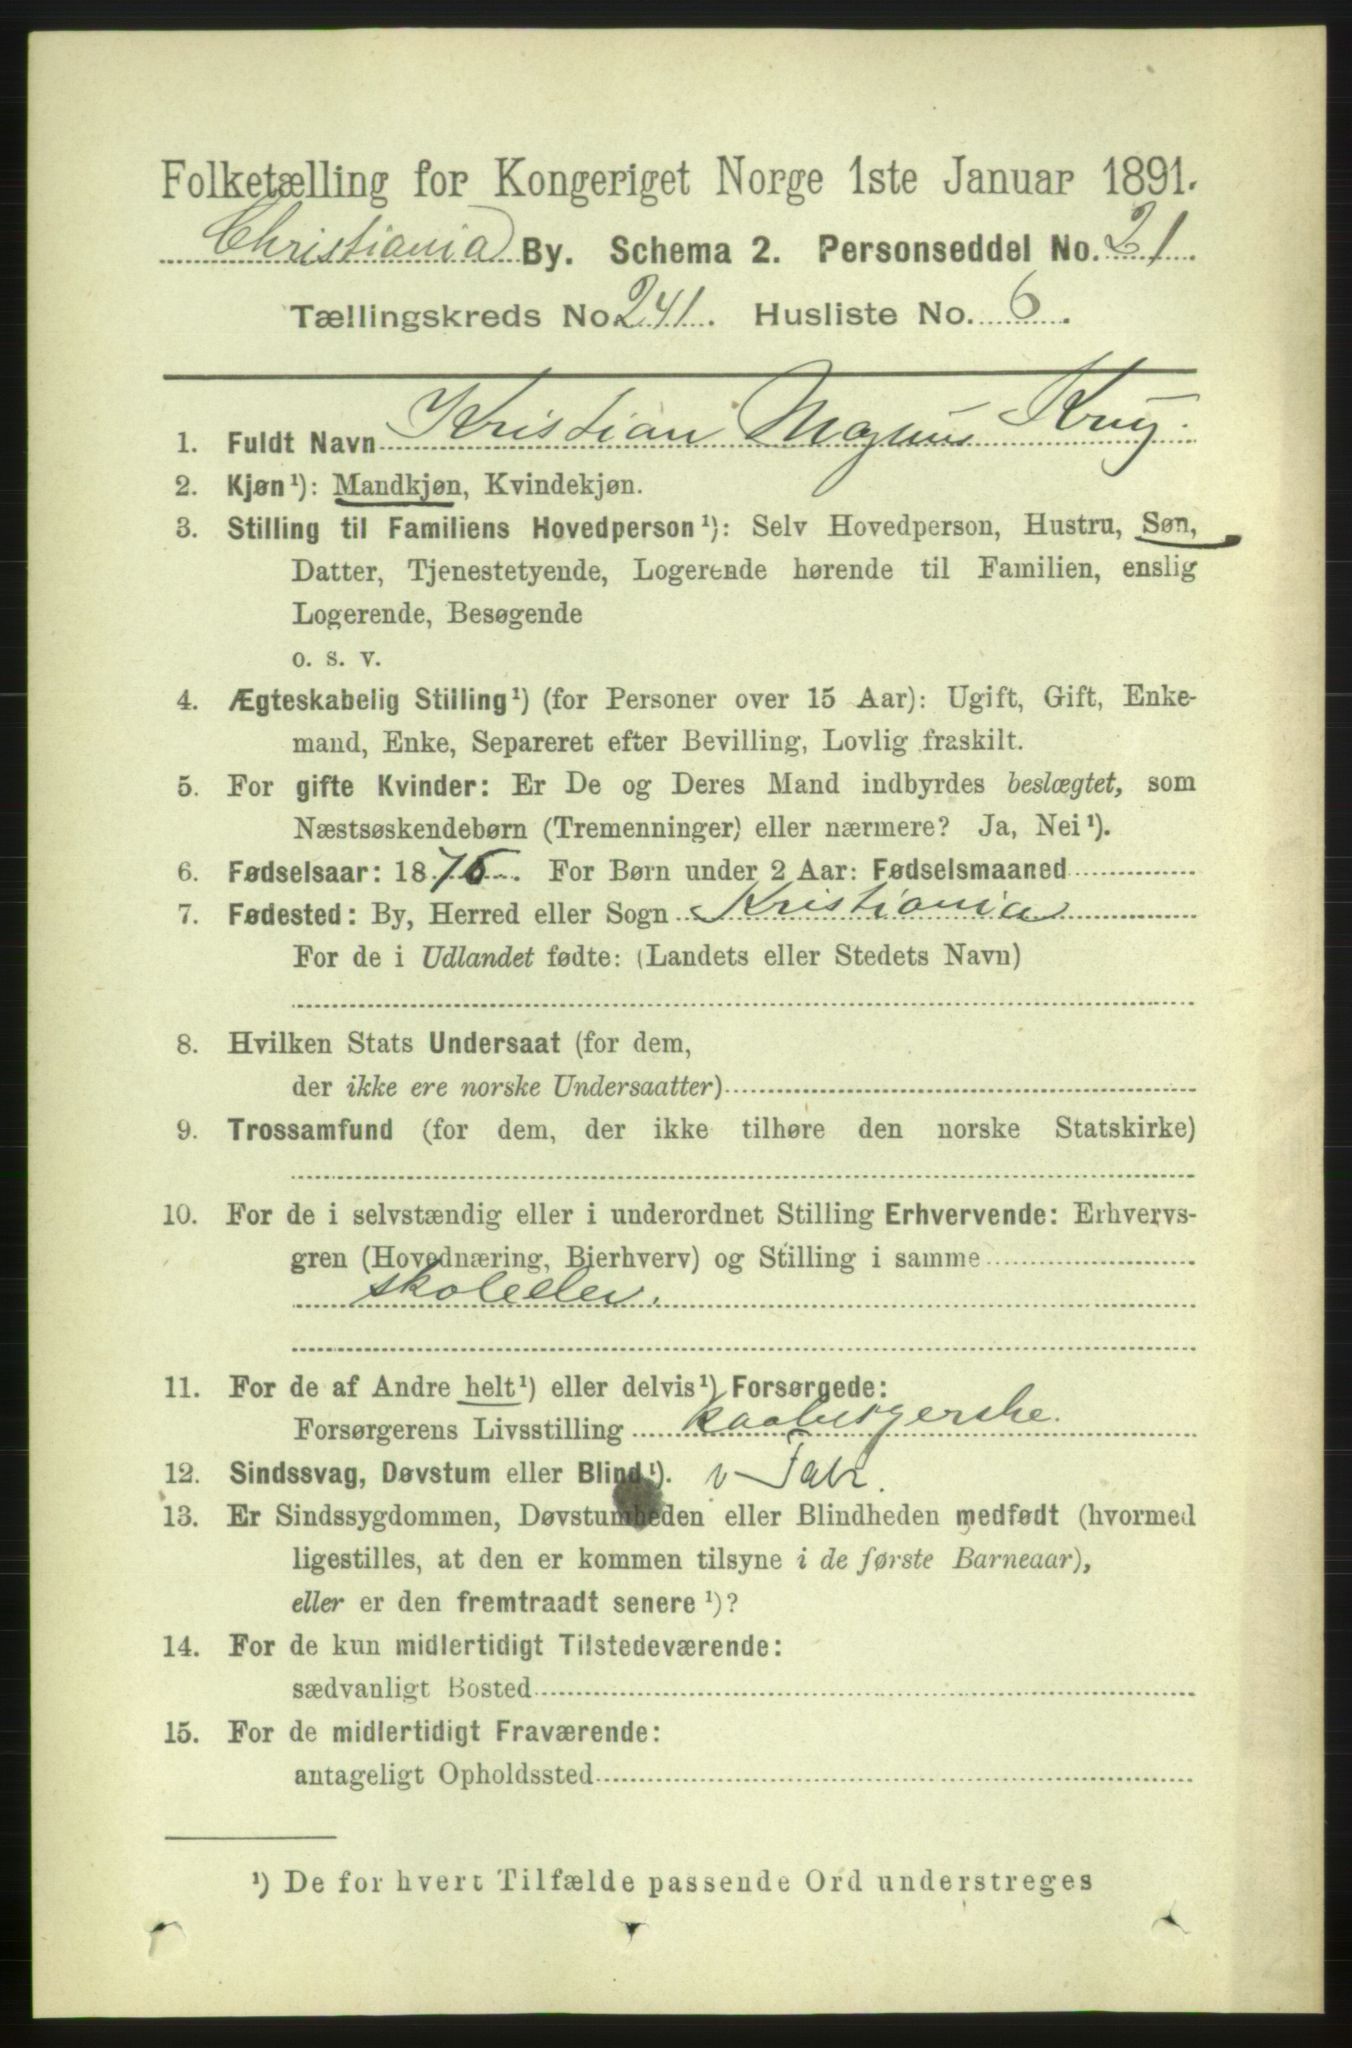 Folketælling for Kongeriget Norge 1ste Januar 1891.
Christiania By. Schema 2. Personseddel No. 21.
Tællingskreds No. 241. Husliste No. 6.
1. Fuldt Navn Kristian Magnus Krug.
2. Kjøn¹): Mandkjøn, Kvindekjøn.
3. Stilling til Familiens Hovedperson¹): Selv Hovedperson, Hustru, Søn,
Datter, Tjenestetyende, Logerende hørende til Familien, enslig
Logerende, Besøgende
o. s. v.
4. Ægteskabelig Stilling¹) (for Personer over 15 Aar): Ugift, Gift, Enke-
mand, Enke, Separeret efter Bevilling, Lovlig fraskilt.
5. For gifte Kvinder: Er De og Deres Mand indbyrdes beslægtet, som
Næstsøskendebørn (Tremenninger) eller nærmere? Ja, Nei¹).
6. Fødselsaar: 1876. For Børn under 2 Aar: Fødselsmaaned
7. Fødested: By, Herred eller Sogn Kristiania
For de i Udlandet fødte: (Landets eller Stedets Navn)
8. Hvilken Stats Undersaat (for dem,
der ikke ere norske Undersaatter)
9. Trossamfund (for dem, der ikke tilhøre den norske Statskirke)
10. For de i selvstændig eller i underordnet Stilling Erhvervende: Erhvervs-
gren (Hovednæring, Bierhverv) og Stilling i samme
skoleelev.
11. For de af Andre helt¹) eller delvis¹) Forsørgede:
Forsørgerens Livsstilling
12. Sindssvag, Døvstum eller Blind¹). v Fabr.
13. Er Sindssygdommen, Døvstumheden eller Blindheden medfødt (hvormed
ligestilles, at den er kommen tilsyne i de første Barneaar),
eller er den fremtraadt senere¹)?
14. For de kun midlertidigt Tilstedeværende:
sædvanligt Bosted
15. For de midlertidigt Fraværende:
antageligt Opholdssted
¹) De for hvert Tilfælde passende Ord understreges